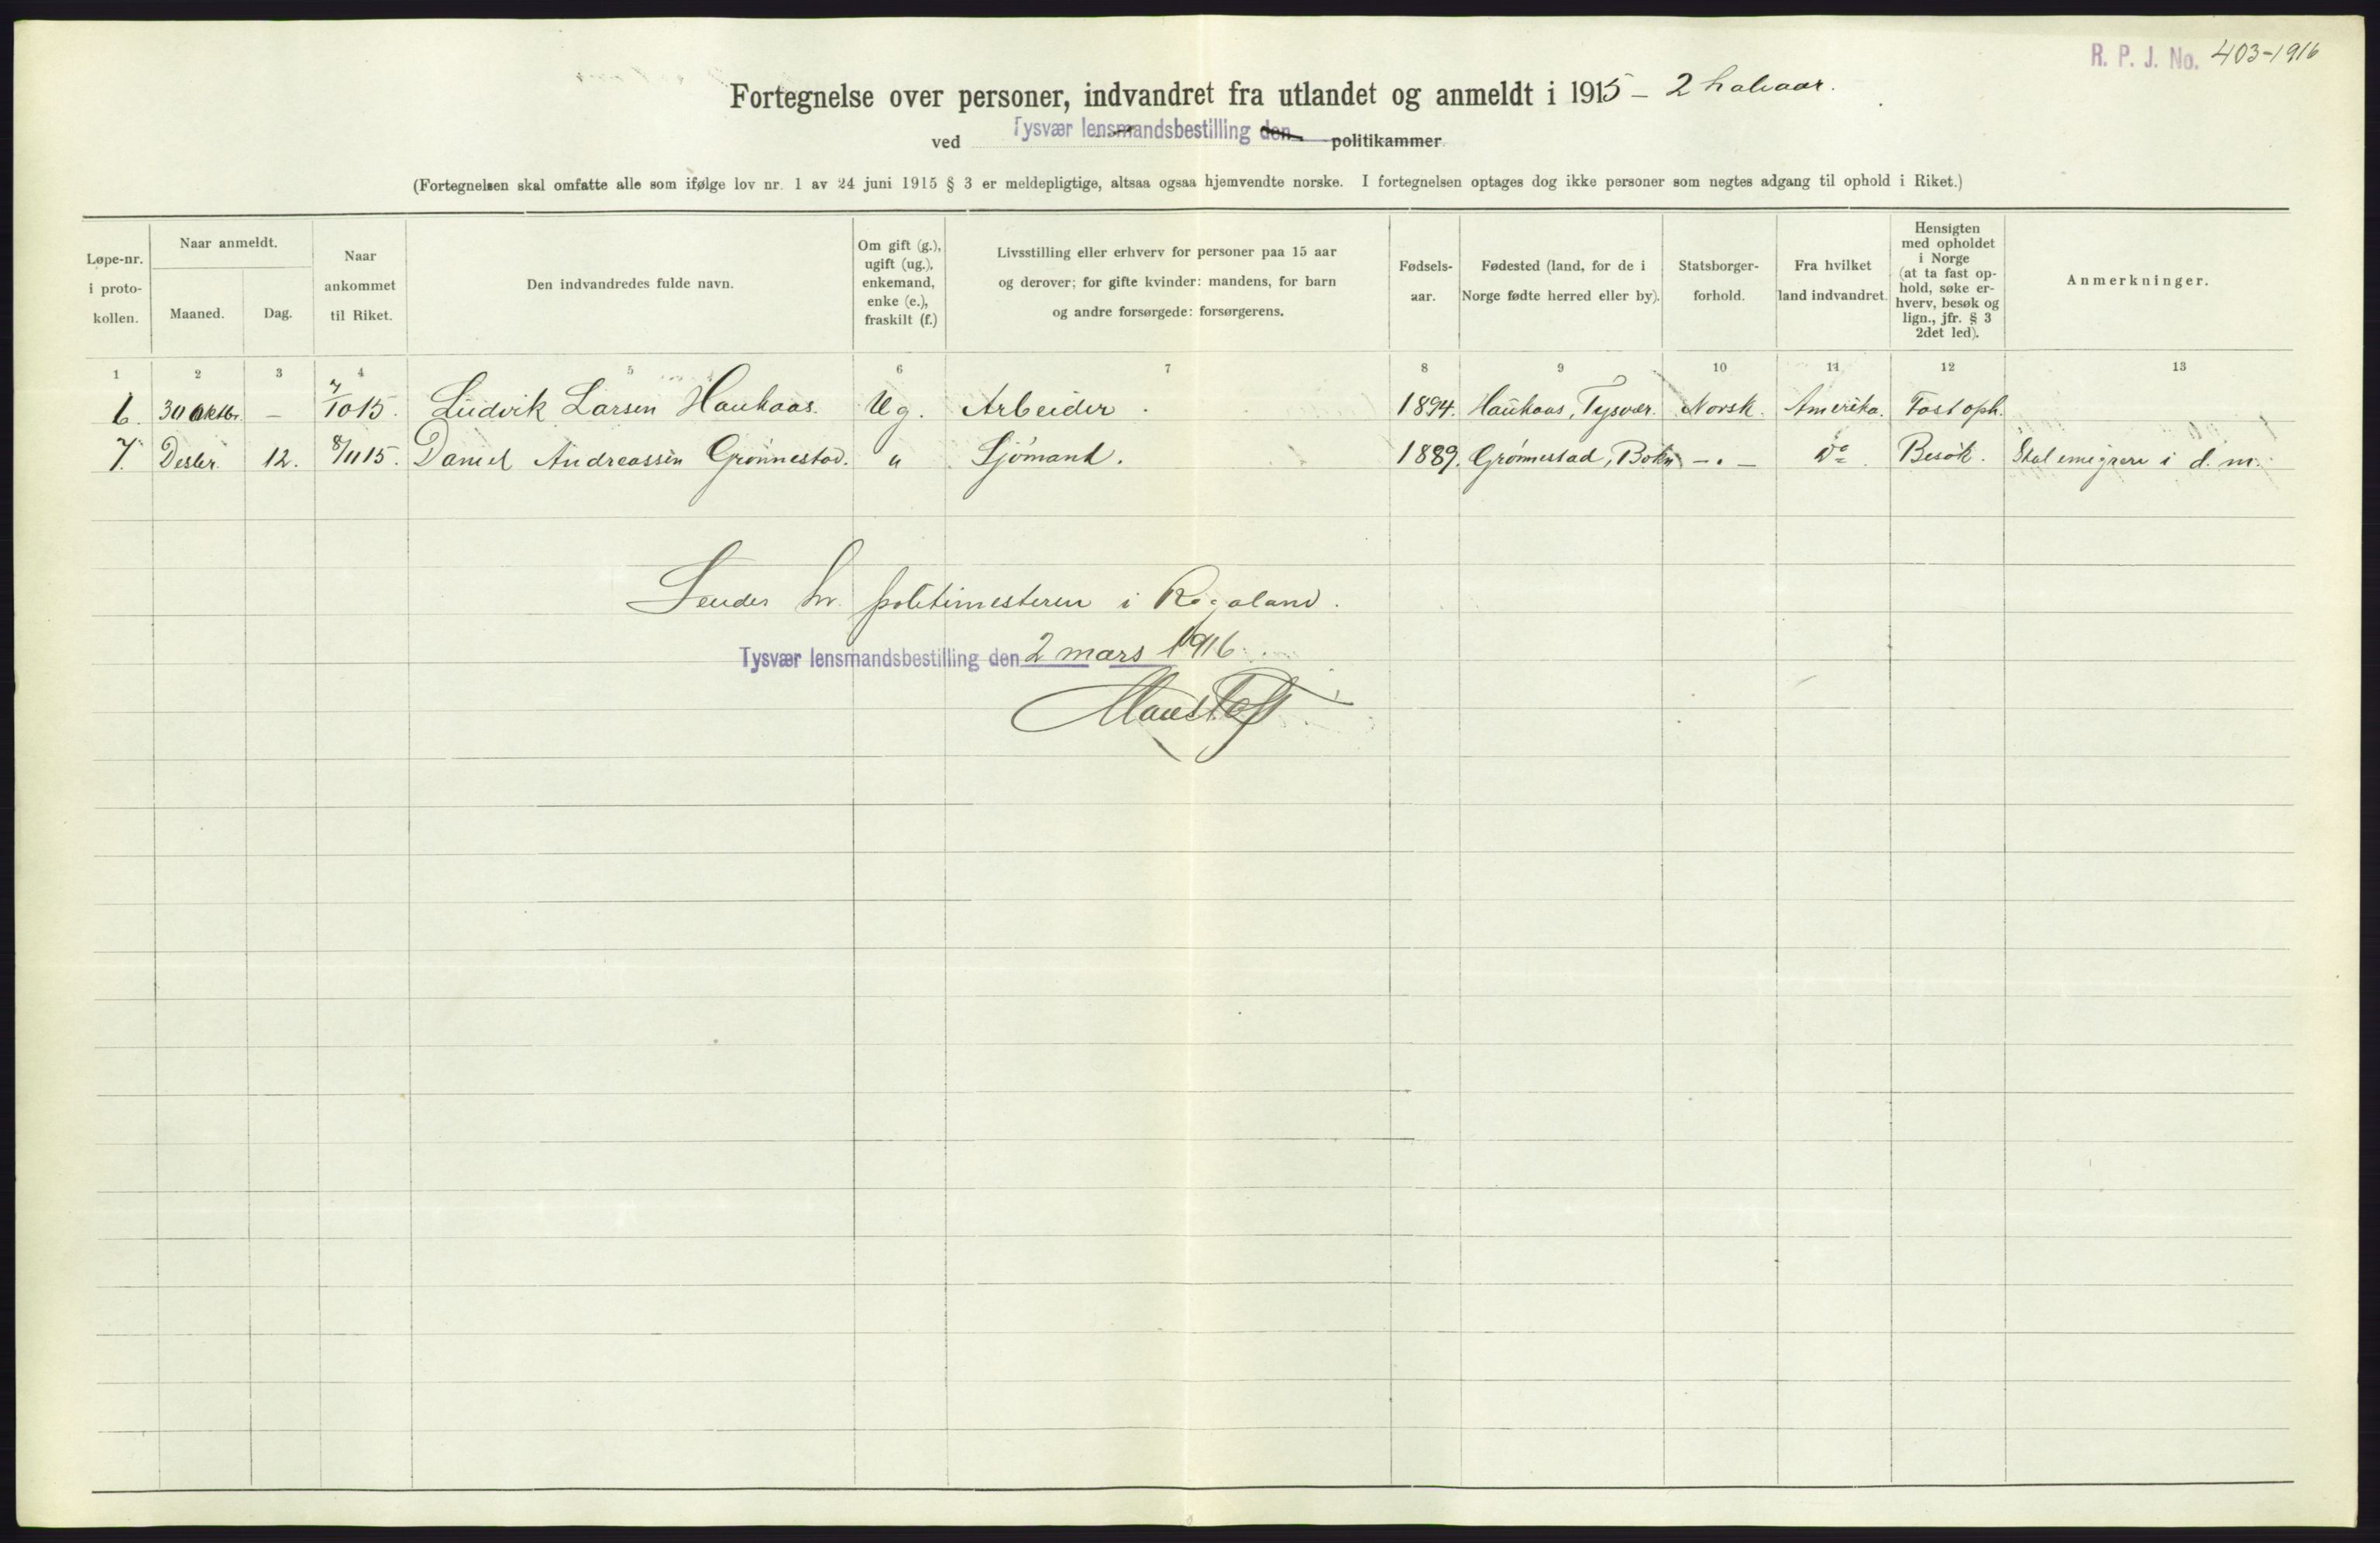 R. P. J. No. 403-1916
Fortegnelse over personer, indvandret fra utlandet og anmeldt i 1915 - 2 halvaar.
ved Tysvær lensmandsbestilling den politikammer.
(Fortegnelsen skal omfatte alle som ifølge lov nr. 1 av 24 juni 1915 § 3 er meldepligtige, altsaa ogsaa hjemvendte norske. I fortegnelsen optages dog ikke personer som negtes adgang til ophold i Riket.)
Løpe-nr.
i proto-
kollen.
Naar anmeldt.
Maaned. Dag.
Naar
ankommet
til Riket.
Den indvandredes fulde navn.
Om gift (g.),
ugift (ug.),
enkemand,
enke (e.),
fraskilt (f.)
Livsstilling eller erhverv for personer paa 15 aar
og derover; for gifte kvinder: mandens, for barn
og andre forsørgede: forsørgerens.
Fødsels-
aar.
Fødested (land, for de i
Norge fødte herred eller by).
Statsborger-
forhold.
Fra hvilket
land indvandret.
Hensigten
med opholdet
i Norge
(at ta fast op-
hold, søke er-
hverv, besøk og
lign., jfr. § 3
2det led).
Anmerkninger.
1 2 3 4 5 6 7 8 9 10 11 12 13
6. 30 oktbr. - 7/10 15. Ludvik Larsen Haukaas. Ug. Arbeider. 1894. Haukaas, Tysvær. Norsk. Amerika. Fast oph.
7. Desbr. 12. 8/11 15. Daniel Andreassen Grønnestad. " Sjømand. 1889. Grønnestad, Bokn -"- Do. Besøk. Skal emigrere i d. m.
Sendes hr. politimesteren i Rogaland.
Tysvær lensmandsbestilling den 2 mars 1916.